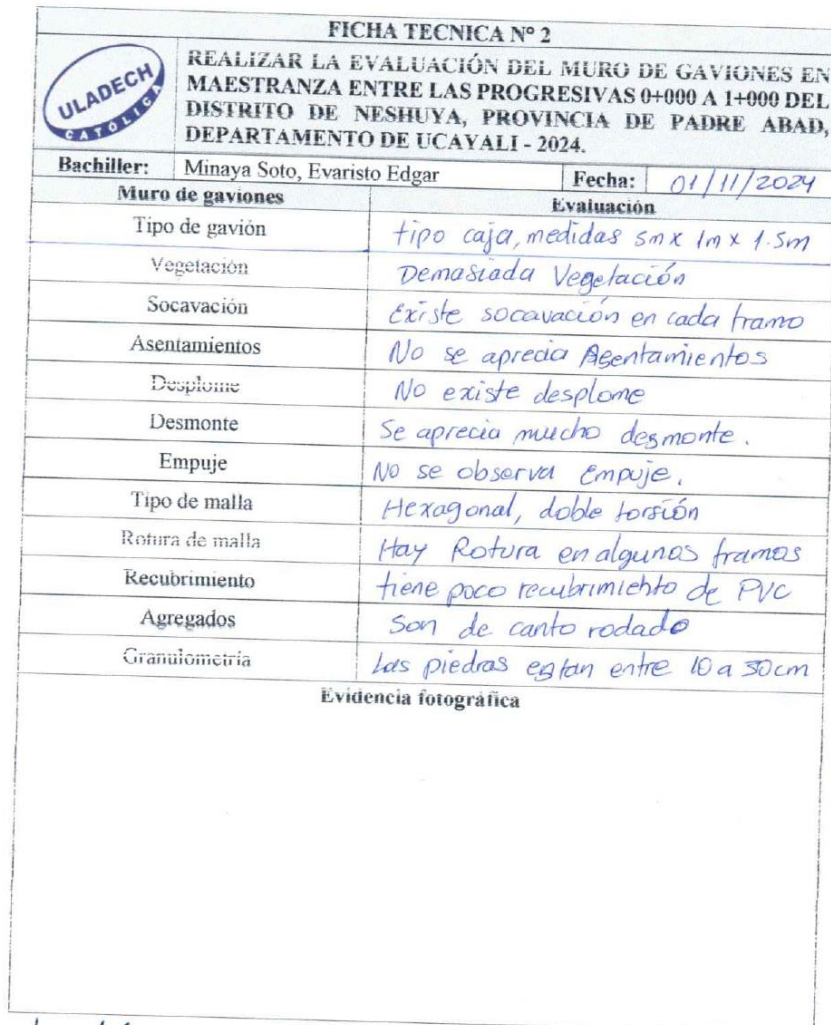 FICHA TECNICA Nº 2
ULADECH
CATOLICA
REALIZAR LA EVALUACIÓN DEL MURO DE GAVIONES EN
MAESTRANZA ENTRE LAS PROGRESIVAS 0+000 A 1+000 DEL
DISTRITO DE NESHUYA, PROVINCIA DE PADRE ABAD,
DEPARTAMENTO DE UCAYALI - 2024.
Bachiller: Minaya Soto, Evaristo Edgar Fecha: 01/11/2024
Muro de gaviones Evaluación
Tipo de gavión tipo caja, medidas 5m x 1m x 1.5m
Vegetación Demasiada Vegetación
Socavación Existe socavación en cada tramo
Asentamientos No se aprecia Asentamientos
Desplome No existe desplome
Desmonte Se aprecia mucho desmonte.
Empuje No se observa Empuje.
Tipo de malla Hexagonal, doble torsión
Rotura de malla Hay Rotura en algunos tramos
Recubrimiento tiene poco recubrimiento de PVC
Agregados Son de canto rodado
Granulometría Las piedras estan entre 10 a 30cm
Evidencia fotográfica